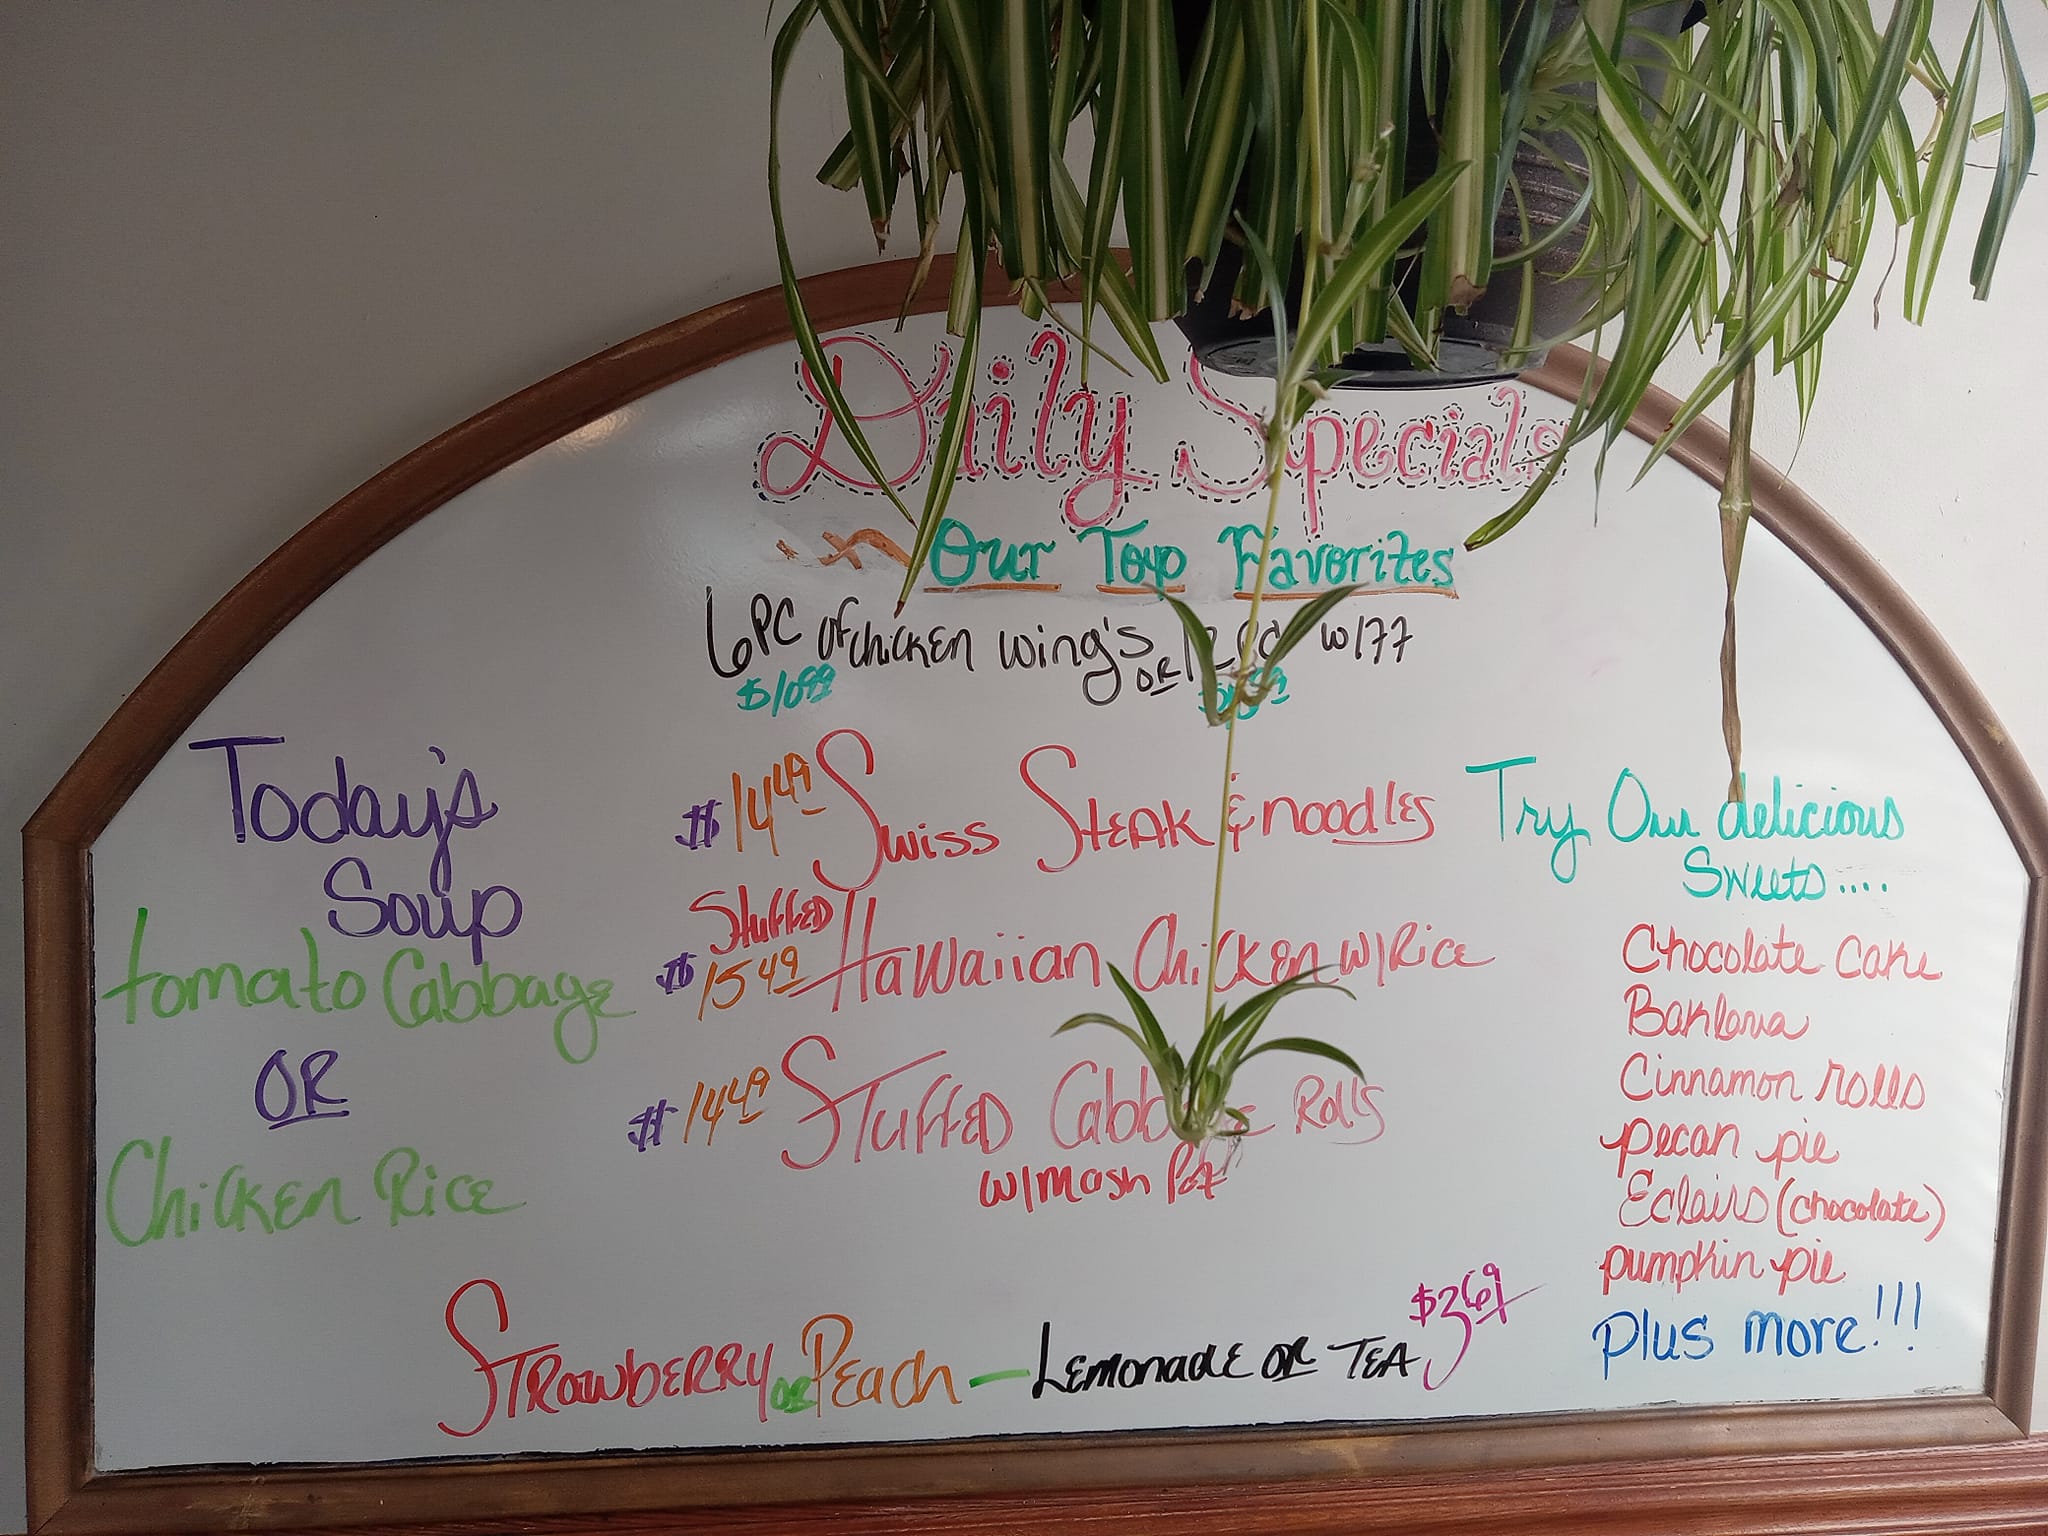 Daily Specials
Our Top Favorites
6 PC of chicken wing's OR 12 w/ FF
$10.99
Today's
Soup
tomato Cabbage
OR
Chicken Rice
$14.49 Swiss Steak & noodles
Stuffed
$15.49 Hawaiian Chicken w/ Rice
$14.49 Stuffed Cabbage Rolls
w/ mash Pot
Try Our delicious
Sweets....
Chocolate cake
Baklava
Cinnamon rolls
pecan pie
Eclairs (chocolate)
pumpkin pie
Plus more!!!
Strawberry or Peach - Lemonade or Tea $3.69